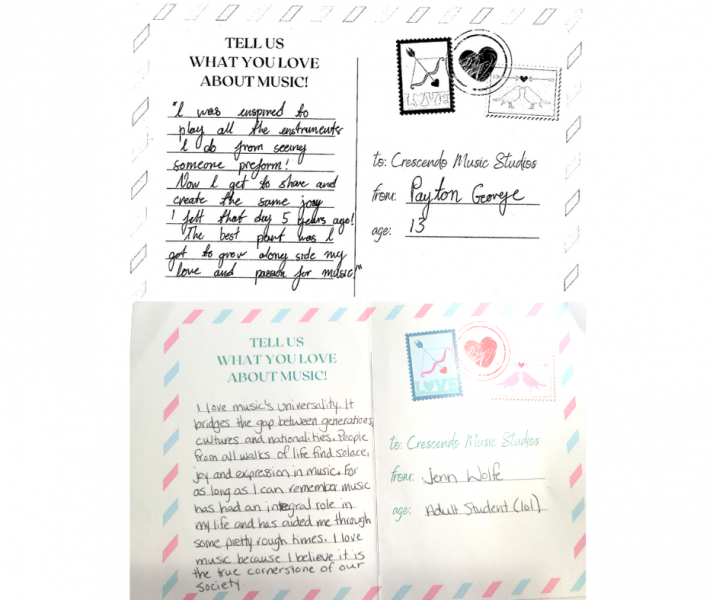 TELL US
WHAT YOU LOVE
ABOUT MUSIC!
"I was inspired to
play all the instruments
I do from seeing
someone preform!
Now I get to share and
create the same joy
I felt that day 5 years ago!
The best part was I
got to grow along side my
love and passion for music!"
LOVE
to: Crescendo Music Studios
from: Payton George
age: 13
TELL US
WHAT YOU LOVE
ABOUT MUSIC!
I love music's universality. It
bridges the gap between generations,
cultures and nationalities. People
from all walks of life find solace,
joy and expression in music. For
as long as I can remember music
has had an integral role in
my life and has aided me through
some pretty rough times. I love
music because I believe it is
the true cornerstone of our
society
LOVE
to: Crescendo Music Studios
from: Jenn Wolfe
age: Adult Student (lol)